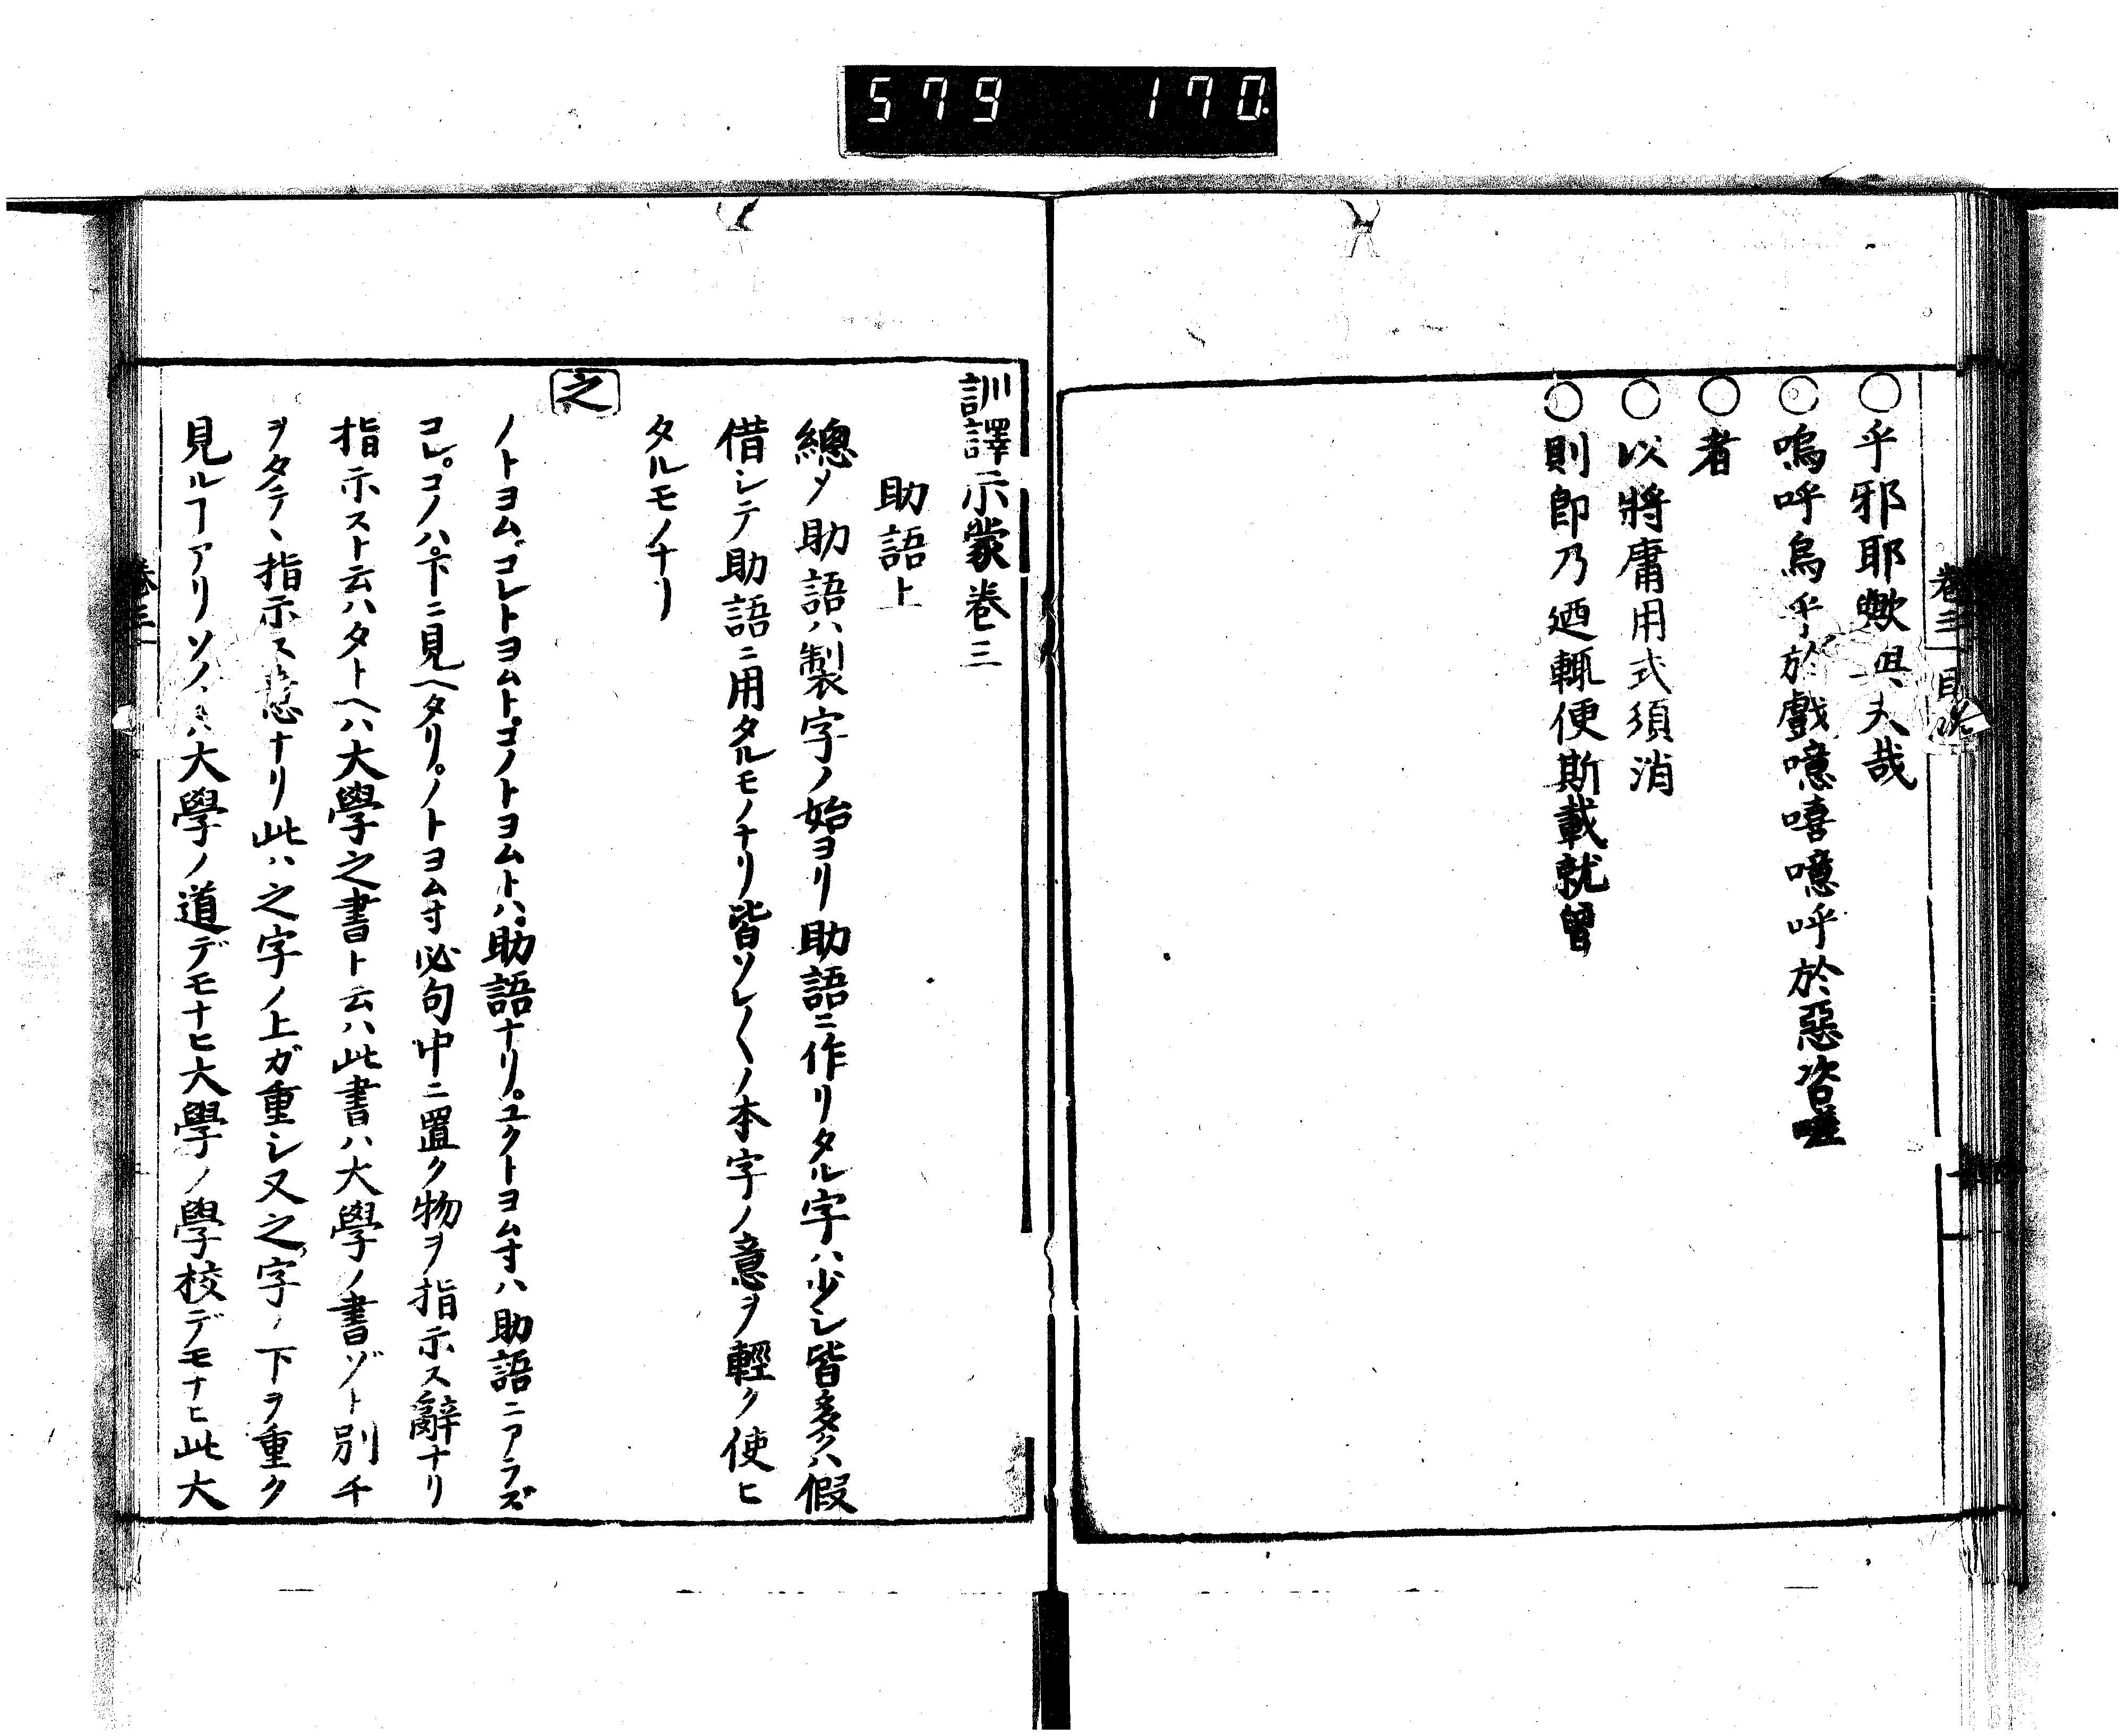 579 170.
卷三 目
○乎邪耶歟與夫哉
○嗚呼烏乎於戲噫嘻噫呼於惡咨嗟
○者
○以將庸用式須消
○則卽乃迺輒便斯載就曾
訓譯示蒙卷三
助語上
總〆助語ハ製字ノ始ヨリ助語ニ作リタル字ハ少シ皆多クハ假
借シテ助語ニ用タルモノナリ皆ソレ〱ノ本字ノ意ヲ輕ク使ヒ
タルモノナリ
之
ノトヨム。コレトヨムト。コノトヨムトハ。助語ナリ。ユクトヨム寸ハ助語ニアラズ
コレ。コノハ。下ニ見ヘタリ。ノトヨム寸必句中ニ置ク物ヲ指示ス辭ナリ
指示スト云ハタトヘハ大學之書ト云ハ此書ハ大學ノ書ゾト別チ
ヲタテヽ指示ス意ナリ此ハ之字ノ上ガ重シ又之字ノ下ヲ重ク
見ルヿアリソノ ハ大學ノ道デモナヒ大學ノ學校デモナヒ此大
卷三